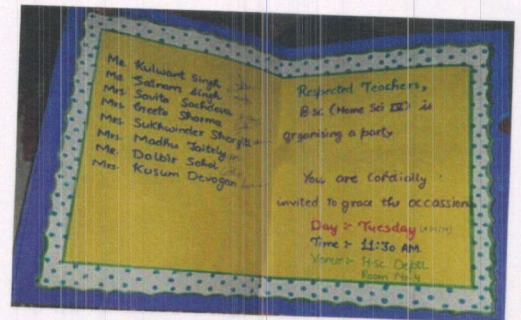 Mr. Kulwant Singh
Mr. Satnam Singh
Mrs. Savita Sachdeva
Mrs. Geeta Sharma
Mrs. Sukhwinder
Mrs. Madhu Jaitely
Mr. Dalbir
Mrs. Kusum Devogan
Respected Teachers,
B.sc (Home Sci IV) is
organising a party
You are Cordially
invited to grace the occassion
Day :- Tuesday
Time :- 11:30 AM
Venue :- H.sc Deptt.
Room No-4